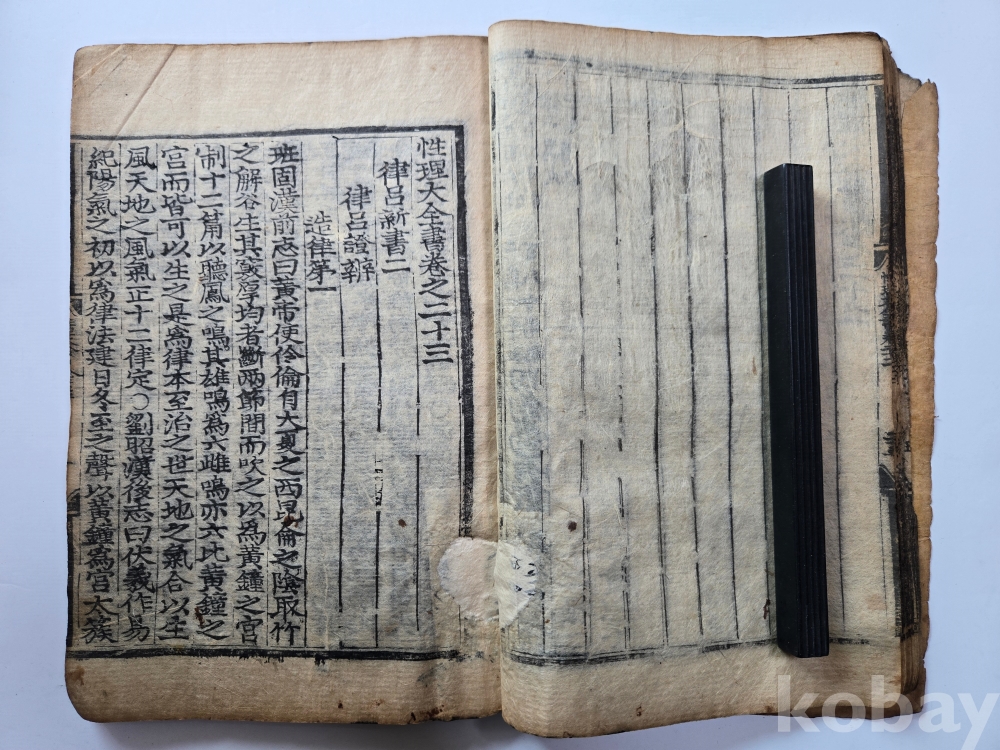 性理大全書卷之二十三
律呂新書二
律呂證辨
造律第一
班固漢前志曰黃帝使伶倫自大夏之西昆侖之陰取竹
之解谷生其竅厚均者斷兩節間而吹之以爲黃鐘之宮
制十二筩以聽鳳之鳴其雄鳴爲六雌鳴亦六比黃鐘之
宮而皆可以生之是爲律本至治之世天地之氣合以生
風天地之風氣正十二律定○劉昭漢後志曰伏羲作易
紀陽氣之初以爲律法建日冬至之聲以黃鐘爲宮太蔟
kobay